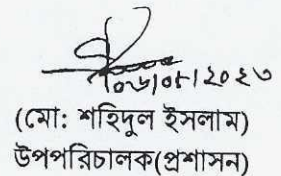 ০৬/০৮/২০২৩
(মো: শহিদুল ইসলাম)
উপপরিচালক(প্রশাসন)